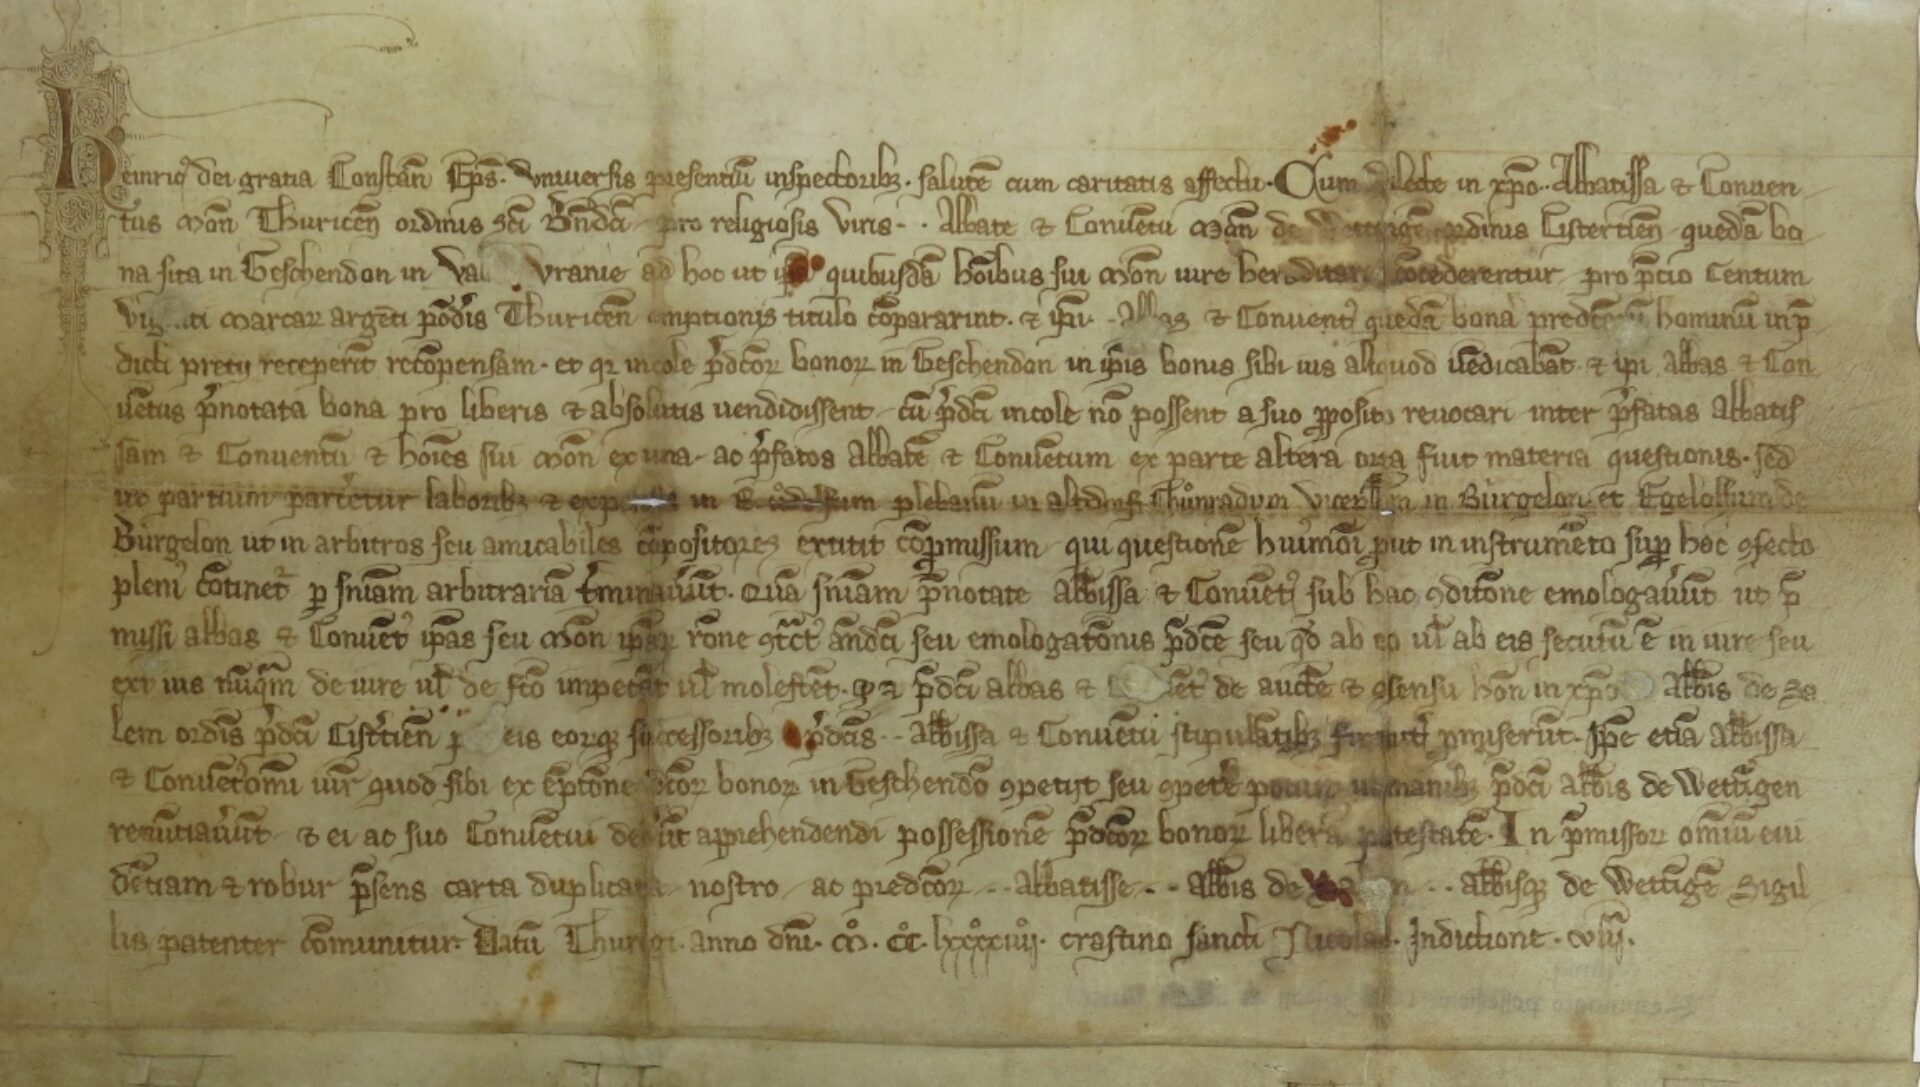 Heinric' dei gratia Constan̄ Ep̄s. vniuersis presentiū inspectorib3. salutē cum caritatis affectu. Cum dilecte in xp̄o.. Abbatissa et Conuen
tus Mon̄ Thuricen̄ ordinis sc̄i Bn̄dc̄i pro religiosis viris.. Abbate et Conuētu Mon̄ de ordinis Cistercien̄ quedā bo
na sita in Geschendon in vranie ad hoc ut quibusdā hōibus sui Mon̄ iure concederentur pro p̄cio Centum
marcar argēti pōdis Thuricen̄ emptionis titulo cōpararint. et ip̄i.. et Conuent' quedā bona hominū in p̄
dicti pretij receperīt recōpensam. et qr incole p̄dc̄or bonor in Geschendon in ip̄is bonis sibi ius aliquod vēdicabāt et ip̄i abbas et Con
uētus p̄notata bona pro liberis et absolutis uendidissent cū p̄dc̄i incole nō possent a suo p̱posito reuocari inter p̄fatas abbatis
sam et Conuentū et hōies sui Mon̄ ex una ac p̄fatos abbatē et Conuētum ex parte altera orta fuit materia questionis. sed
ut partium parcetur laborib3 et in plebanū in altdorf Chůnradum in Bůrgelon et Egelolfum de
Bůrgelon ut in arbitros seu amicabiles cōpositores extitit cōp̱missum qui questionē huiˢmōi p̱ut in instrum̄to sup̱ hoc ꝯfecto
pleni' cōtinet' p̱ sn̄iam arbitrariā t'minau'ūt. Quā sn̄iam p̄notate abb̄issa et Conuēt' sub hac ꝯditōne emologau'ūt ut p̄
missi abbas et Conuēt' ip̄as seu Mon̄ ip̄ar rōne ꝯt̄ct' ān̄dc̄i seu emologatōnis p̄dc̄e seu qd̄ ab eo ul̄ ab eis secutū ē in iure seu
ext̄ ius nūq̄m de iure ul̄ de fc̄o impetāt ul̄ molestēt. p̄dc̄i abbas et de auct̄e et ꝯsensu hon̄ in xp̄o abb̄is de Sa
lem ordīs p̄dc̄i Cist'cien̄ eis eorq3 successorib3 p̄dc̄is.. abb̄isse et Conuētui stipulātib3 p̱miserūt. Ip̄e etiā abb̄issa
et Conuēt' om̄i iuri quod sibi ex ēptōne dc̄or bonor in Geschendō ꝯpetijt seu ꝯpet'e potuit manib3 p̄dc̄i abb̄is de Wettīgen
renūtiau'ūt et ei ac suo Conuētui ded'ūt apprehendendi possessionē p̄dc̄or bonor liberā potestatē. In p̄missor om̄iū eui
dētiam et robur p̄sens carta duplicata nostro ac predc̄or.. abbatisse.. abb̄is de Salem.. abb̄isq3 de Wettīgē Sigil
lis patenter cōmunitur. Datū Thuregi. anno dn̄i. M̊. CC̊. lxxxxiiij̊. crastino sancti Nicolai. Indictione. viij.